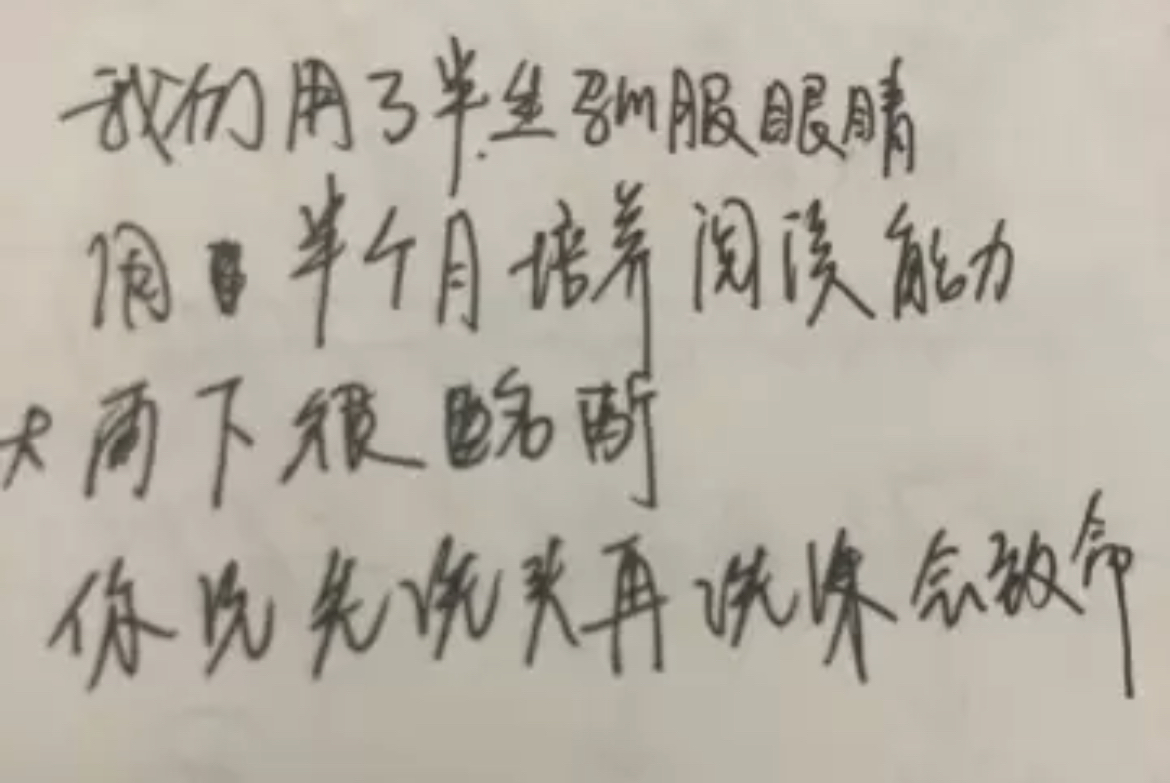 我们用了半生驯服眼睛
用半个月培养阅读能力
大雨下很 断
你说先洗头再洗澡会致命